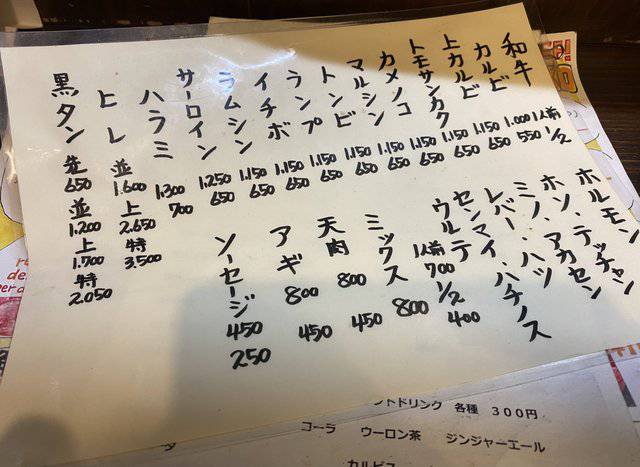 和牛 1人前 1/2
カルビ 1.000 550
上カルビ 1.150 650
トモサンカク 1.150 650
カメノコ 1.150 650
マルシン 1.150 650
トンビ 1.150 650
ランプ 1.150 650
イチボ 1.150 650
ラムシン 1.150 650
サーロイン 1.250 650
ハラミ 1.300 700
ヒレ 並 1.600 上 2.650 特 3.500
黒タン 先 650 並 1.200 上 1.700 特 2.050
ホルモン
ホソ・テッチャン
ミノ・アカセン
レバー・ハツ
センマイ・ハチノス
ウルテ 1人前 700 1/2 400
ミックス 800
天肉 800 450
アギ 800 450
ソーセージ 450 250
トドリンク 各種 300円
コーラ ウーロン茶 ジンジャーエール
カルピス